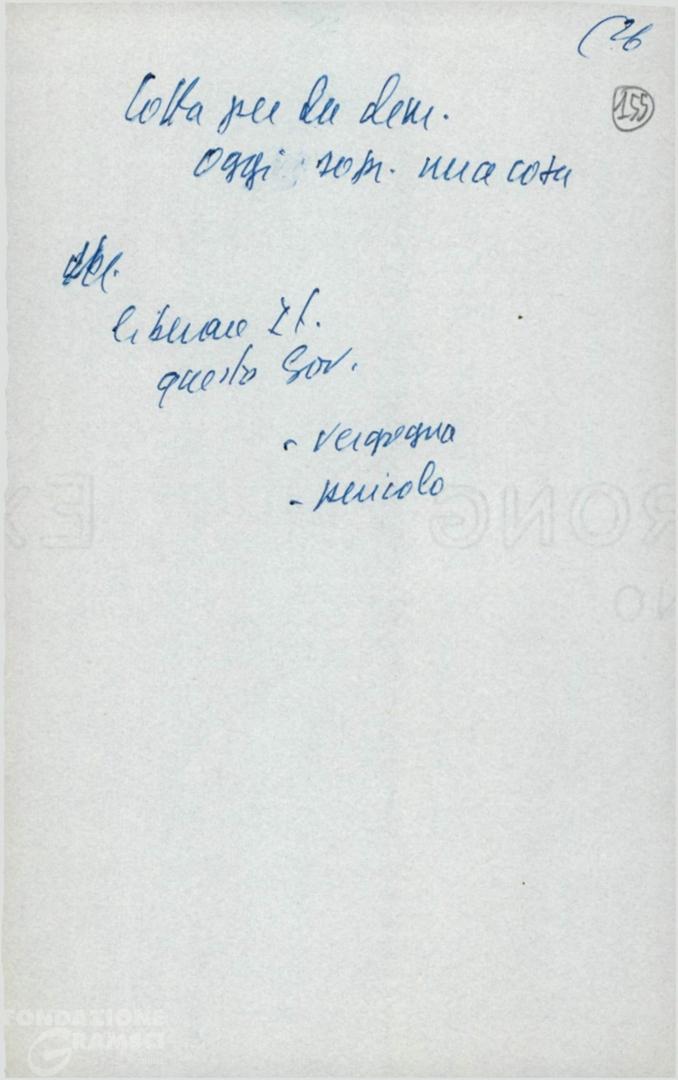 (26
155
Lotta per la dem.
oggi sopr. una cosa
liberare It.
questo Gov.
- vergogna
- pericolo
RONG
EX
NO
FONDAZIONE
GRAMSCI